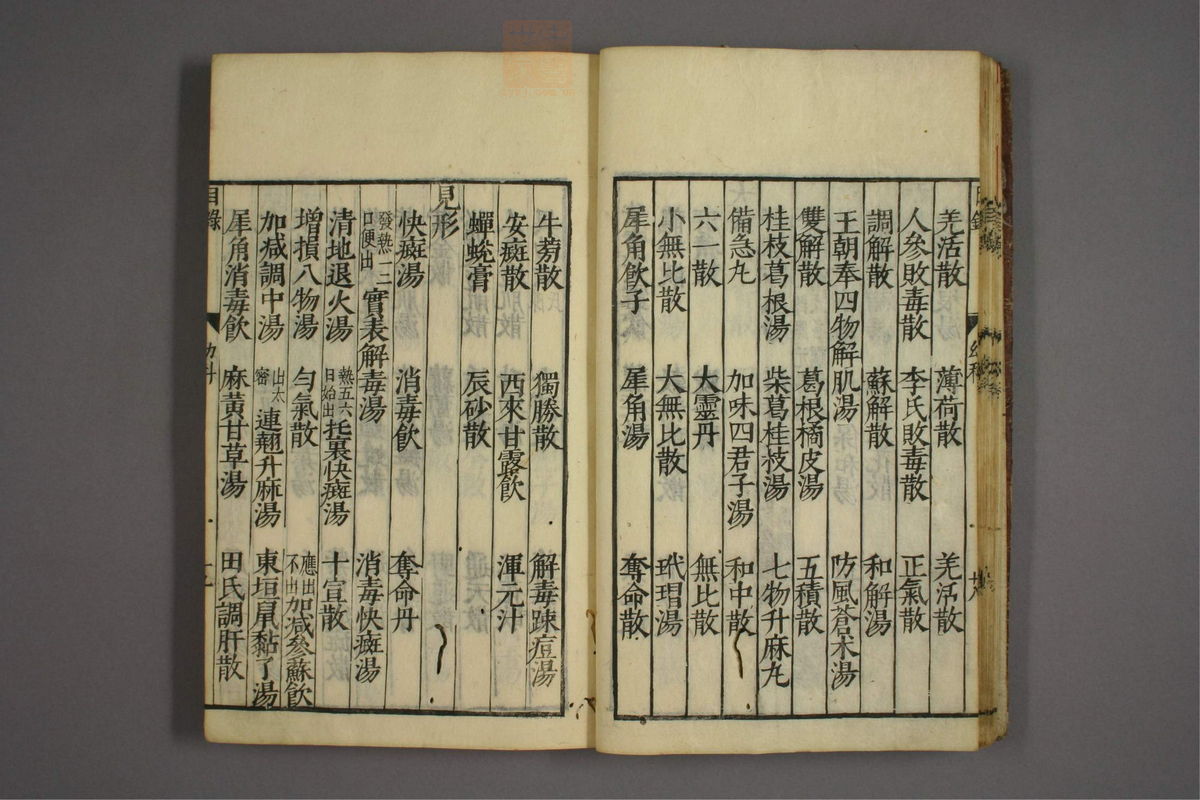 羌活散 薄荷散 羌活散
人參敗毒散 李氏敗毒散 正氣散
調解散 蘇解散 和解湯
王朝奉四物解肌湯 防風蒼朮湯
雙解散 葛根橘皮湯 五積散
桂枝葛根湯 柴葛桂枝湯 七物升麻丸
備急丸 加味四君子湯 和中散
六一散 大靈丹 無比散
小無比散 大無比散 玳瑁湯
犀角飲子 犀角湯 奪命散
牛蒡散 獨勝散 解毒踈痘湯
安癍散 西來甘露飲 渾元汁
蟬蛻膏 辰砂散
見形
快癍湯 消毒飲 奪命丹
發熱一二口便出 實表解毒湯 消毒快癍湯
清地退火湯 熱五六日始出 托裏快癍湯 十宣散
增損八物湯 勻氣散 應出不出 加减參蘇飲
加减調中湯 出太密 連翹升麻湯 東垣鼠黏子湯
犀角消毒飲 麻黃甘草湯 田氏調肝散
目錄 幼科